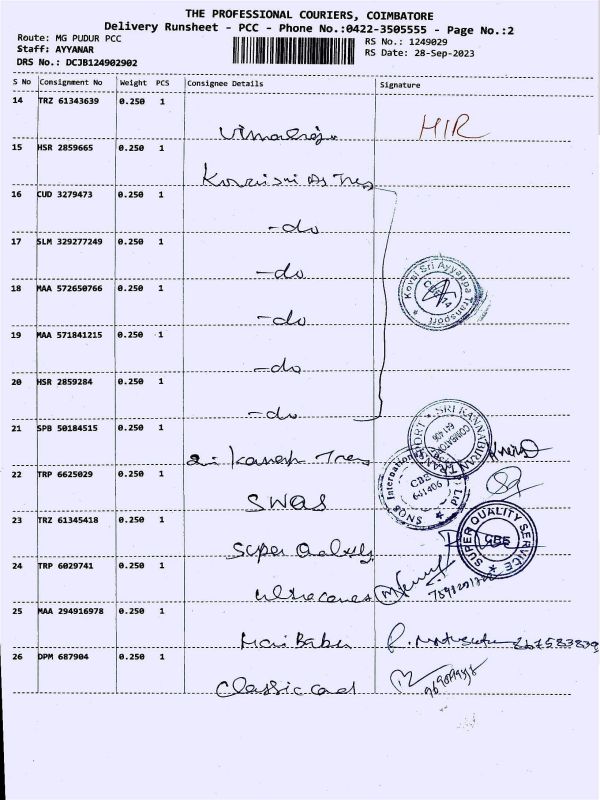 THE PROFESSIONAL COURIERS, COIMBATORE
Delivery Runsheet - PCC - Phone No.:0422-3505555 - Page No.:2
Route: MG PUDUR PCC
RS No.: 1249029
Staff: AYYANAR
RS Date: 28-Sep-2023
DRS No.: DCJB124902902
S No Consignment No Weight PCS Consignee Details Signature
14 TRZ 61343639 0.250 1
HIR
15 HSR 2859665 0.250 1
16 CUD 3279473 0.250 1
-do
17 SLM 329277249 0.250 1
-do
Kovai Sri Ayyappa Transport
18 MAA 572650766 0.250 1
-do
19 MAA 571841215 0.250 1
-do
20 HSR 2859284 0.250 1
-do
SRI KANNABIRAN TRANSPORT
21 SPB 50184515 0.250 1
22 TRP 6625029 0.250 1
SWQS
SNQS International Ltd
CBE
641406
23 TRZ 61345418 0.250 1
Super Quality
SUPER QUALITY SERVICE
CBE
24 TRP 6029741 0.250 1
25 MAA 294916978 0.250 1
Hari Babu
26 DPM 687904 0.250 1
Classic card